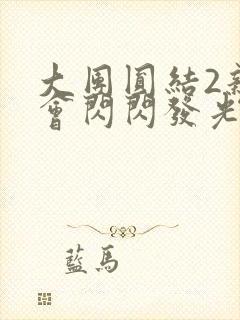 大團圓結2新
會閃閃發光
藍馬